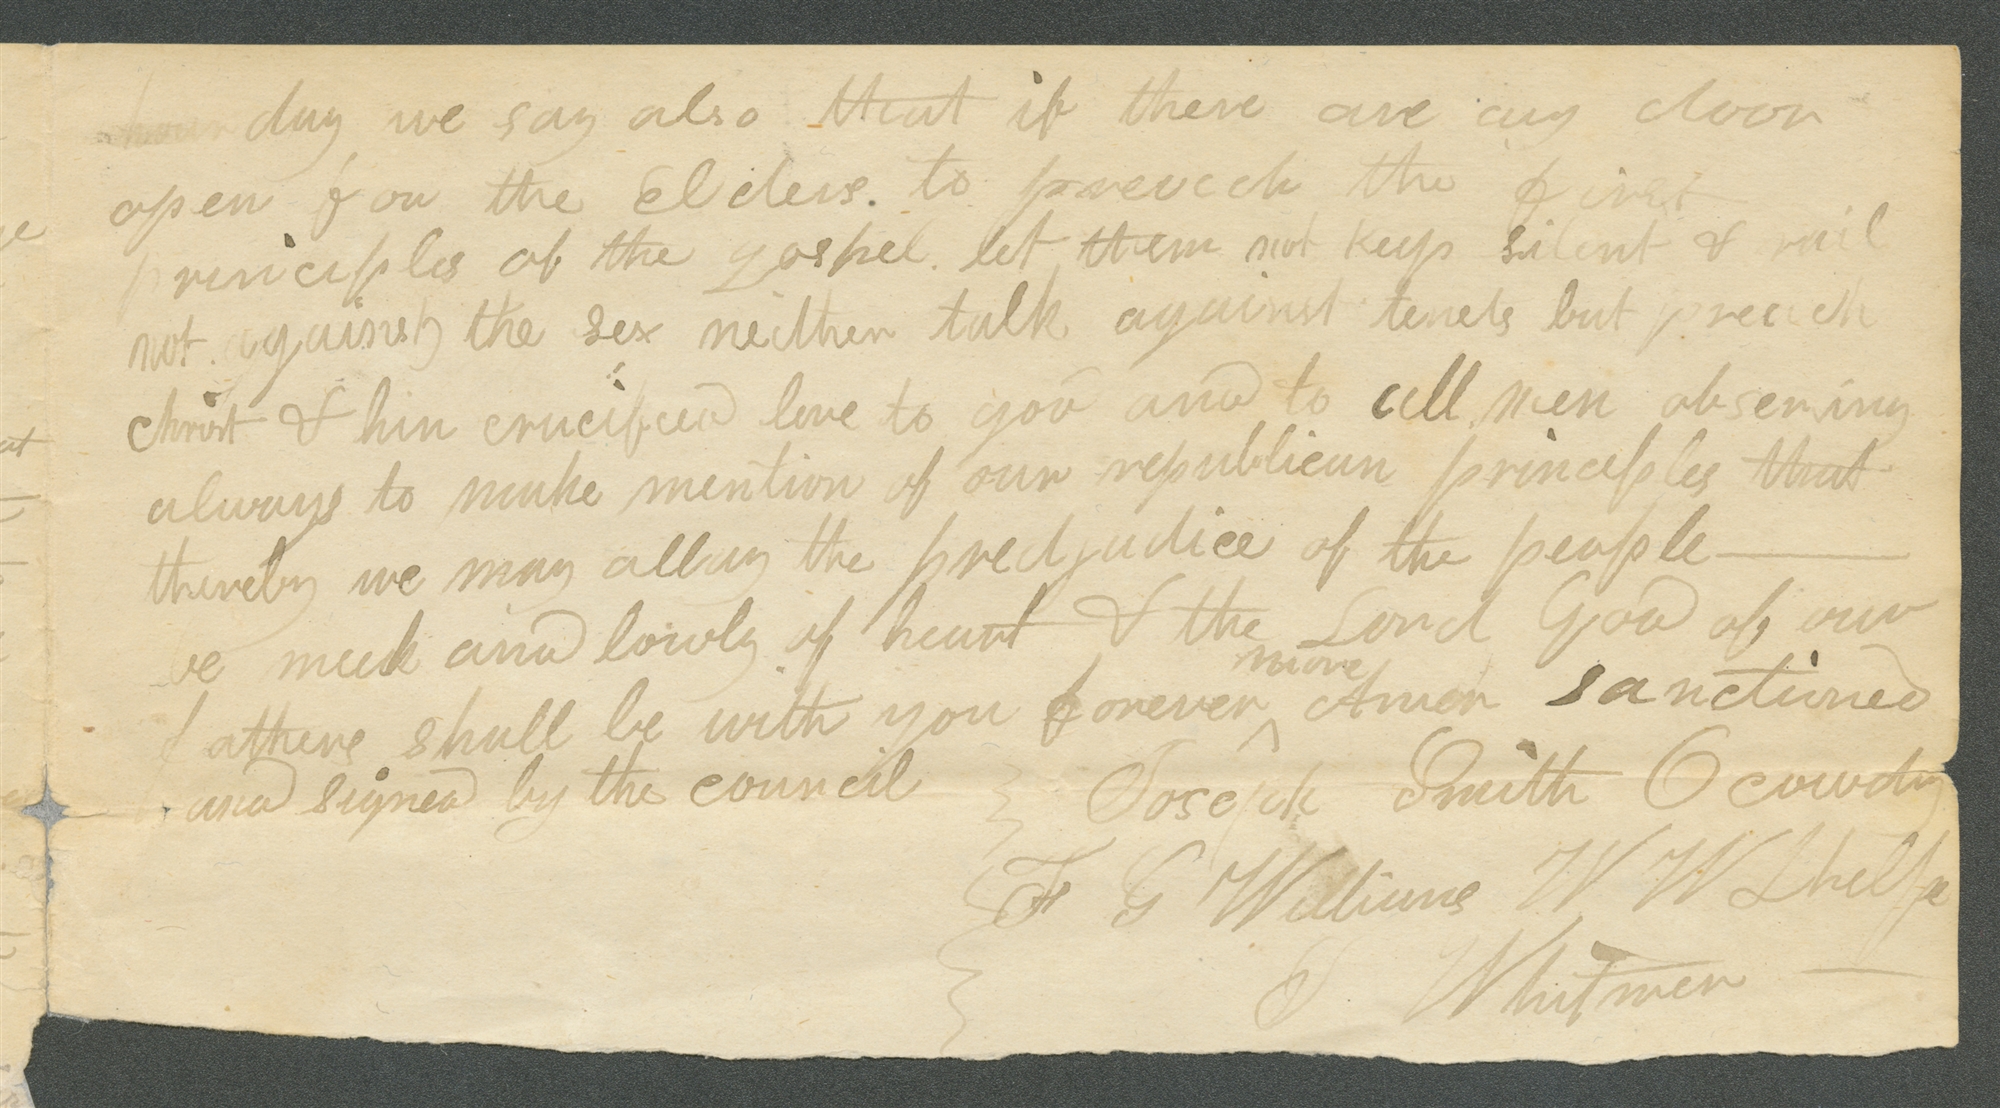 day we say also that if there are any door
open for the Elders. to preach the first
principles of the gospel. let them not keep silent & rail
not against the sex neither talk against tenets but preach
christ & him crucified love to god and to all men observing
always to make mention of our republican principles that
thereby we may allay the predjudice of the people
be meek and lowly of heart & the Lord God of our
fathers shall be with you forever more Amen sanctioned
and signed by the council
Joseph Smith O cowdry
F G Williams W W Phelps
J Whitmer